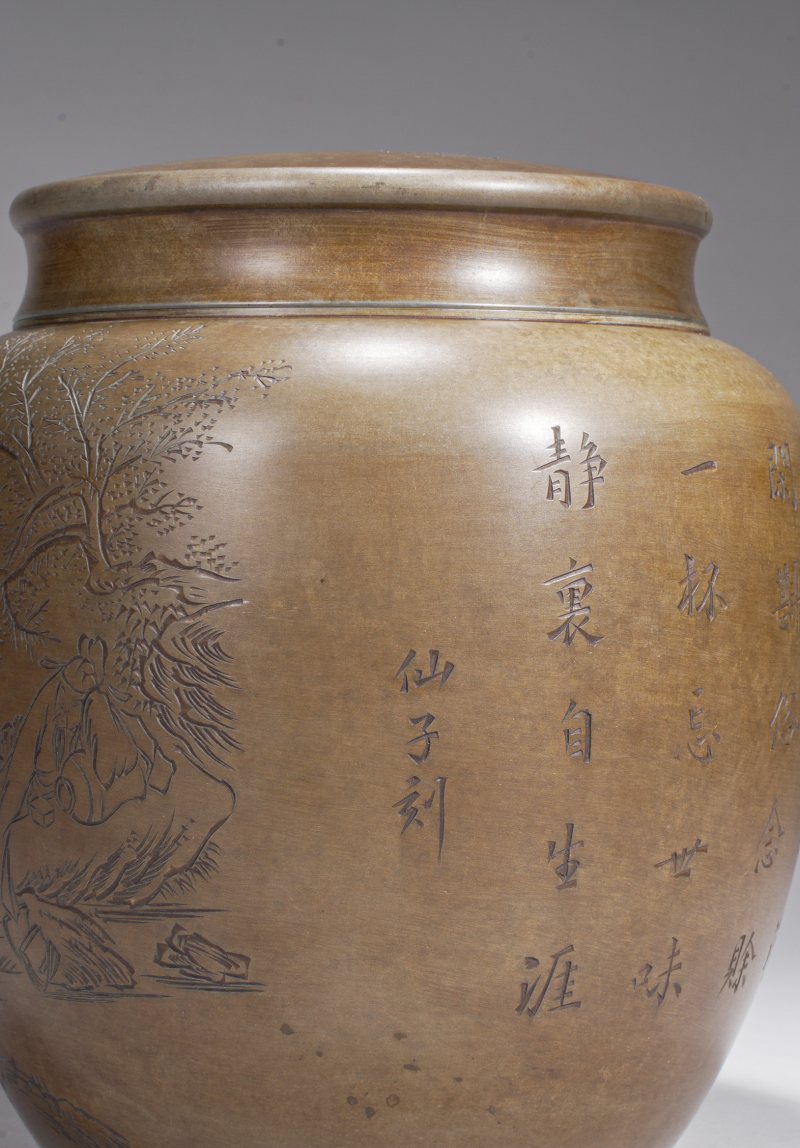 念賒
一杯忘世味
静裏自生涯
仙子刻